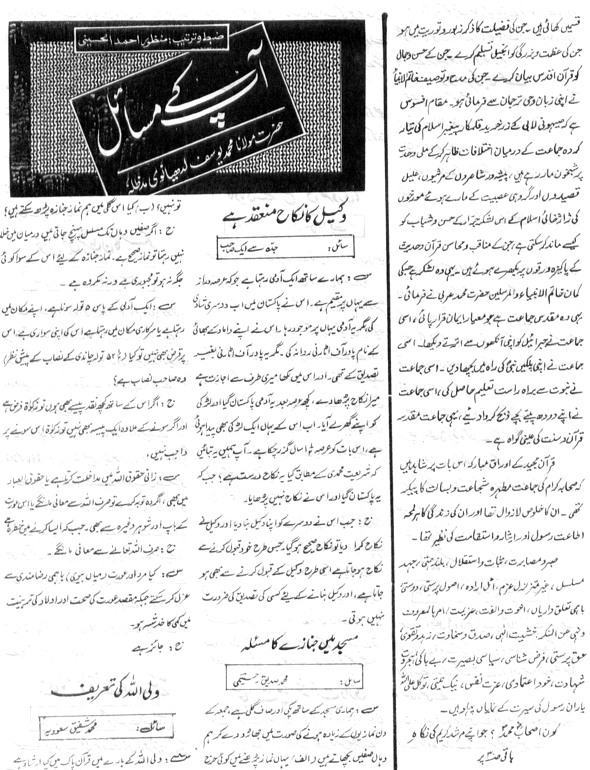 قسمیں کھائی ہیں۔ جن کی فضیلت کا ذکر زبور و توریت میں ہو
جن کی عظمت و بزرگی کو انجیل تسلیم کرے۔ جن کے حسن و جمال
کو قرآن اقدس بیان کرے۔ جن کی مدح و توصیف خاتم الانبیاءؐ
نے اپنی زبان وحی ترجمان سے فرمائی ہو۔ مقام افسوس
ہے کہ صیہونی لابی کے زر خرید قلمکار پیغمبر اسلام کی تیار
کردہ جماعت کے درمیان اختلافات ظاہر کر کے ملی وحدت
پر شبخون مار رہے ہیں، پیشہ ور شاعروں کے مرثیوں، علیل
قصیدوں اور گروہی عصبیت کے مارے ہوئے مورخوں
کی ژاژخائی اسلام کے اس لشکر جرار کے حسن و شباب کو
کیسے ماند کر سکتی ہے، جن کے مناقب و محاسن قرآن و حدیث
کے پاکیزہ ورقوں پر بکھرے ہوئے ہیں۔ یہی وہ لشکر ہے جسکی
کمان خاتم الانبیاء والمرسلین حضرت محمد عربی نے فرمائی۔
یہی وہ مقدس جماعت ہے جو معیار ایمان قرار پائی، اسی
جماعت نے جبرائیل کو اپنی آنکھوں سے اترتے دیکھا۔ اسی
جماعت نے اپنی پلکیں نبیؐ کی راہ میں بچھا دیں۔ اسی جماعت
نے نبوت سے براہ راست تعلیم حاصل کی، اسی جماعت
نے اپنے دودھ پیتے بچے ذبح کروا دیئے، یہی جماعت مقدسہ
قرآن و سنت کی عینی گواہ ہے۔
قرآن مجید کے اوراق مبارکہ اس بات پر شاہد ہیں
کہ صحابہ کرام کی جماعت مطہرہ شجاعت و بسالت کا پیکر
تھی۔ ان کا خلوص لازوال تھا اور ان کی زندگی کا ہر لمحہ
اطاعت رسول اور ایثار و استقامت کی نظیر تھا۔
صبر و مصابرت، ثبات و استقلال، بلند ہمتی، جہد
مسلسل، غیر متزلزل عزم، اٹل ارادہ، اصول پرستی، دوستی
باہمی تعلق داریاں، اخوت و الفت، عزیمت، امر بالمعروف
و نہی عن المنکر، خشیت الہی، صدق و سخاوت، زہد و تقویٰ
حق پرستی، فرض شناسی، سیاسی بصیرت، بے باکی، ہجرت و
شہادت، خود اعتمادی، عزت نفس، نیک نیتی، توکل علی اللہ
یاران رسول کی سیرت کے نمایاں پہلو ہیں۔
کون اصحاب محمدؐ؟ جو اپنے مرشد کریم کی نگاہ
باقی صـ پر
ضبط و ترتیب: منظور احمد الحسینی
آپ کے مسائل
حضرت مولانا محمد یوسف لدھیانوی مدظلہ
وکیل کا نکاح منعقد ہے
سائل: جدہ سے ایک صاحب
س: ہمارے ساتھ ایک آدمی رہتا ہے جو کہ عرصہ دراز
سے یہاں پر مقیم ہے۔ اس نے پاکستان میں اب دوسری شادی
کی مگر یہ آدمی یہاں پر موجود رہا۔ اس نے اپنے داماد کے بھائی
کے نام پاور آف اٹارنی روانہ کی۔ مگر یہ پاور آف اٹارنی بغیر
تصدیق کے تھی۔ اور اس میں لکھا میری طرف سے اجازت ہے
میرا نکاح پڑھا دے، کچھ عرصہ بعد یہ آدمی پاکستان گیا اور لڑکی
کو اپنے گھر لے آیا۔ اب اس کے یہاں ایک لڑکی بھی پیدا ہوئی
ہے، اس بات کو عرصہ سال گزر چکا ہے۔ آپ ہمیں یہ بتائیں
کہ شریعت محمدی کے مطابق کیا یہ نکاح درست ہے؟ جب کہ
یہ پاکستان گیا اور اس نے نکاح نہیں پڑھایا۔
ج: جب اس نے دوسرے کو اپنا وکیل بنا دیا اور وکیل نے
نکاح کرا دیا تو نکاح صحیح ہو گیا۔ جس طرح خود قبول کرنے سے
نکاح ہو جاتا ہے اسی طرح وکیل کے قبول کرنے سے بھی ہو
جاتا ہے، اور وکیل بنانے کے لیئے کسی کی تصدیق کی ضرورت
نہیں ہوتی۔
مسجد میں جنازے کا مسئلہ
سائل: محمد صدیق
س: ہماری مسجد کے ساتھ پکی اور صاف گلی ہے، جمعہ کے
دن نمازیوں کے زیادہ ہونے کی صورت میں جھاڑو دے کر ہم
وہاں صفیں بچھاتے ہیں (الف) یہاں نماز پڑھنے میں کوئی حرج
تو نہیں؟ (ب) کیا اس گلی میں ہم نماز جنازہ پڑھ سکتے ہیں؟
ج: اگر صفیں وہاں تک مسلسل پہنچ جاتی ہیں، درمیان میں خلا
نہیں ہوتا تو نماز صحیح ہے۔ نماز جنازہ کے لیئے اس کے سوا کوئی
جگہ نہ ہو تو مجبوری ہے ورنہ مکروہ ہے۔
س: ایک آدمی کے پاس ۵ تولہ سونا ہے، اپنے مکان میں
رہتا ہے یا سرکاری مکان میں رہتا ہے اس کی اپنی سواری ہے، اس
پر قرض بھی نہیں تو کیا (ساڑھے ۵۲ تولہ چاندی کے نصاب کے پیش نظر)
وہ صاحب نصاب ہے؟
ج: اگر اس کے ساتھ کچھ نقد پیسے بھی ہوں تو زکوٰۃ فرض ہے
اور اگر سونے کے علاوہ ایک پیسہ بھی نہیں تو زکوٰۃ اس سونے پر
واجب نہیں۔
س: زانی حقوق اللہ میں مداخلت کرتا ہے یا حقوق العباد
میں بھی، اگر وہ توبہ کرے تو صرف اللہ سے معافی مانگے یا اس عورت
کے باپ اور شوہر وغیرہ سے بھی۔ جب کہ ایسا کرنے میں خطرہ ہے
ج: صرف اللہ تعالیٰ سے معافی مانگے۔
س: کیا مرد اور عورت (میاں بیوی) باہمی رضا مندی سے
عزل کر سکتے ہیں جبکہ مقصد عورت کی صحت اور اولاد کی تربیت
میں کمی کا خدشہ ہو۔
ج: جائز ہے
ولی اللہ کی تعریف
سائل: محمد شفیق سعودیہ
س: ولی اللہ کے بارے میں قرآن پاک میں کیا ارشاد ہے